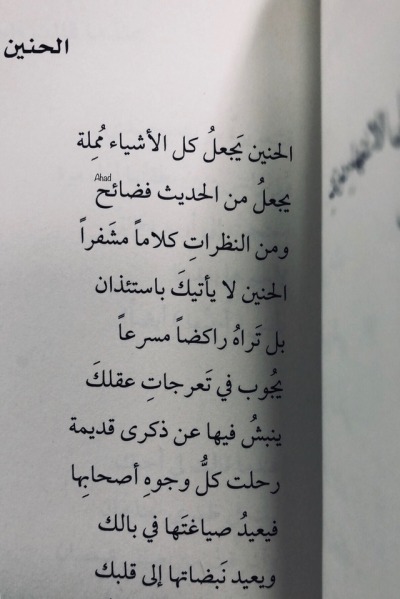 الحنين
الحنين يَجعلُ كل الأشياء مُملِة
يجعلُ من الحديث فضائح
Ahad
ومن النظراتِ كلاماً مشَفراً
الحنين لا يأتيكَ باستئذان
بل تَراهُ راكضاً مسرعاً
يجُوب في تَعرجاتِ عقلكَ
ينبشُ فيها عن ذكرى قديمة
رحلت كلُّ وجوهِ أصحابِها
فيعيدُ صياغتَها في بالك
ويعيد نَبضاتها إلى قلبك